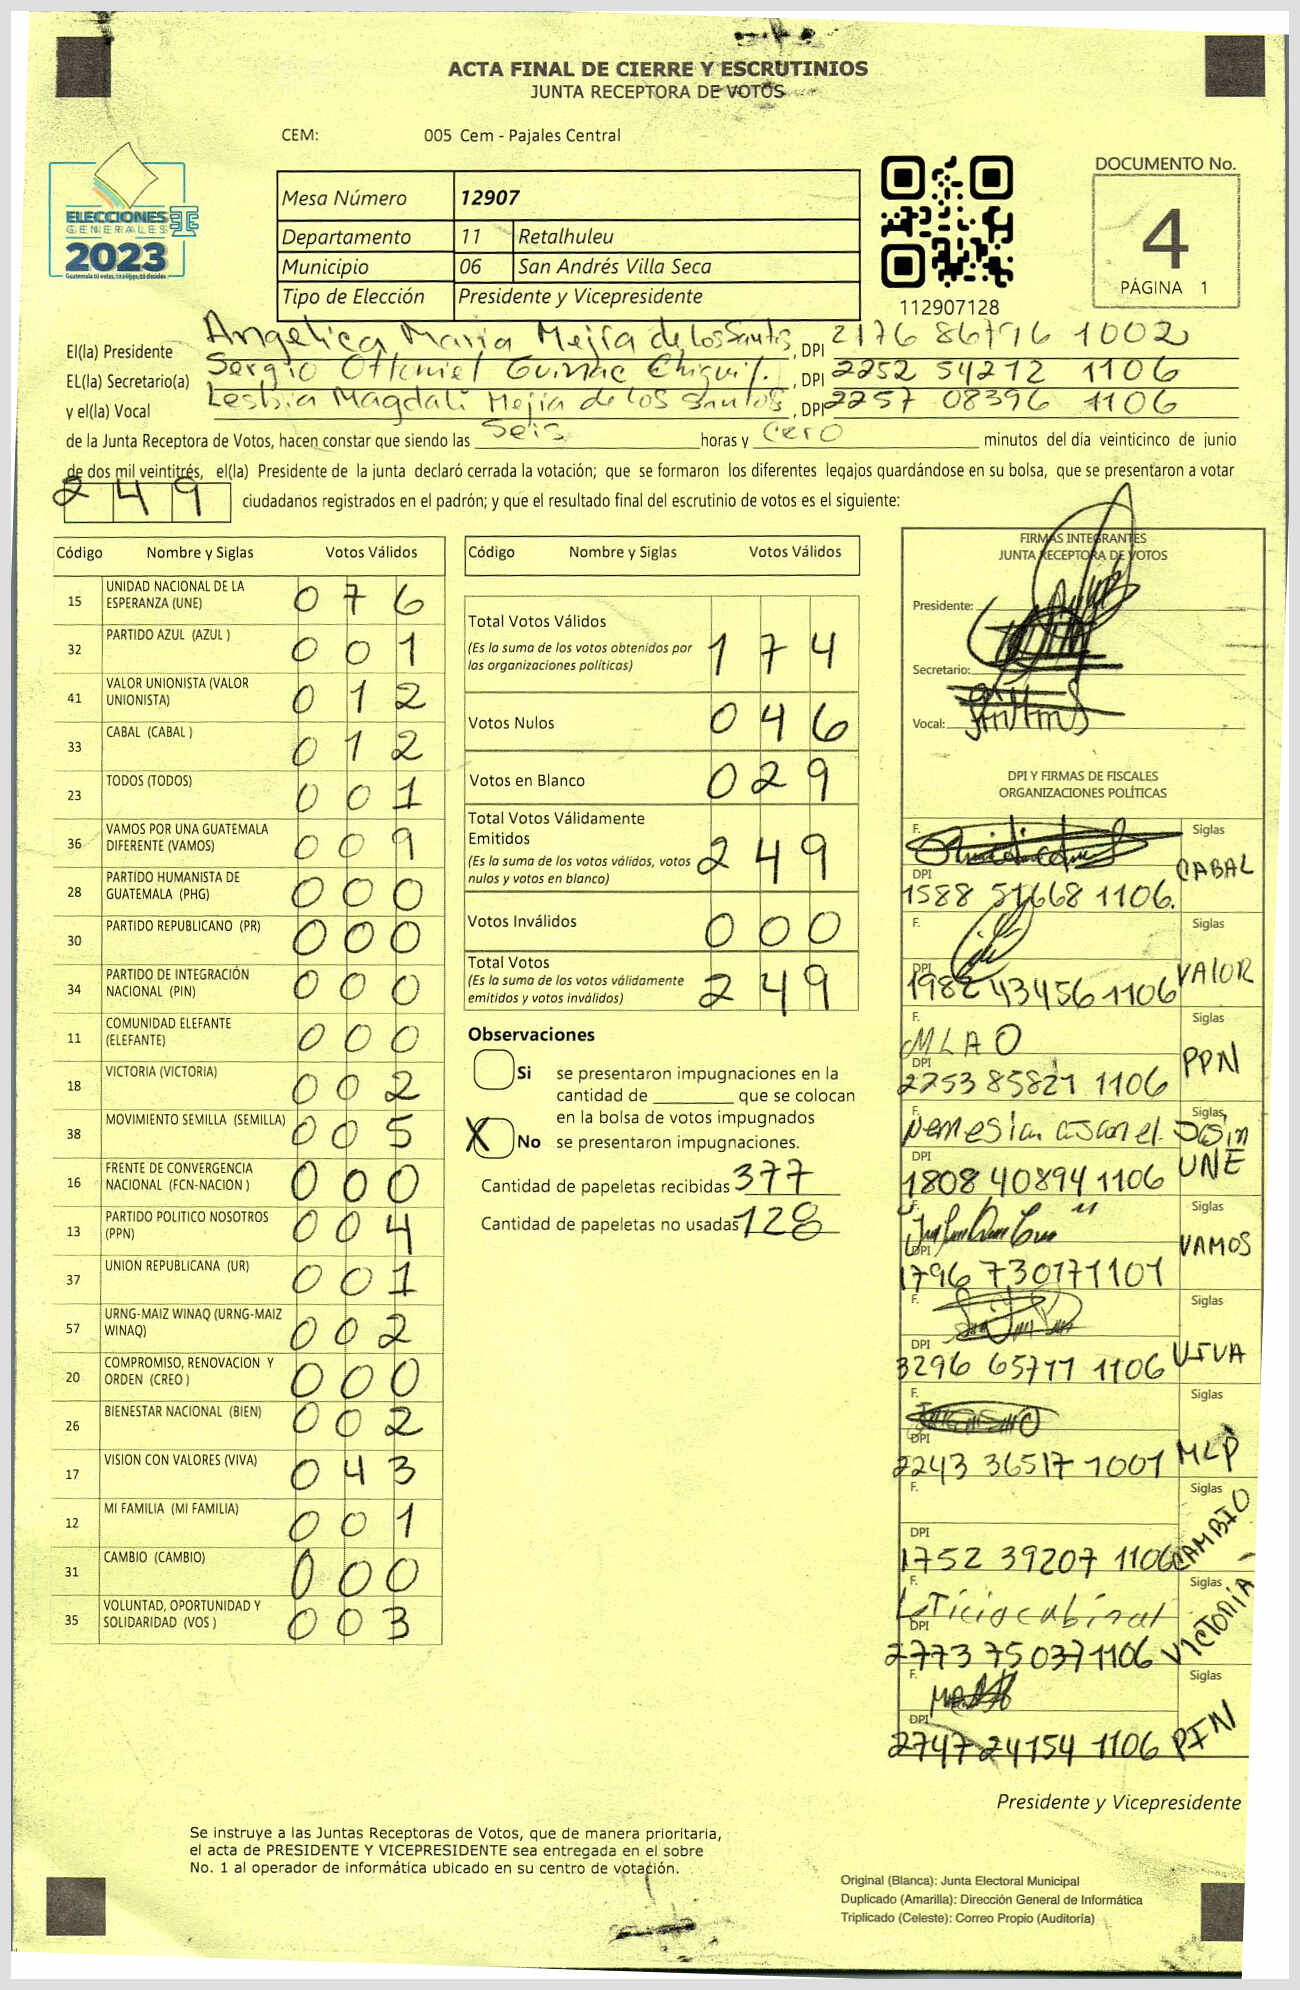 ACTA FINAL DE CIERRE Y ESCRUTINIOS
JUNTA RECEPTORA DE VOTOS
CEM: 005 Cem - Pajales Central
ELECCIONES
GENERALES
2023
Mesa Número 12907
Departamento 11 Retalhuleu
Municipio 06 San Andrés Villa Seca
Tipo de Elección Presidente y Vicepresidente
112907128
DOCUMENTO No.
4
PÁGINA 1
El(la) Presidente Angelica Maria Mejía de los Santos, DPI 2176 86776 1002
EL(la) Secretario(a) Sergio Ottoniel, DPI 2252 54212 1106
y el(la) Vocal Lesbia Magdali Mejia de los Santos, DPI 2257 08396 1106
de la Junta Receptora de Votos, hacen constar que siendo las seis horas y cero minutos del día veinticinco de junio
de dos mil veintitrés, el(la) Presidente de la junta declaró cerrada la votación; que se formaron los diferentes legajos quardándose en su bolsa, que se presentaron a votar
249 ciudadanos registrados en el padrón; y que el resultado final del escrutinio de votos es el siguiente:
Código Nombre y Siglas Votos Válidos
15 UNIDAD NACIONAL DE LA ESPERANZA (UNE) 076
32 PARTIDO AZUL (AZUL ) 001
41 VALOR UNIONISTA (VALOR UNIONISTA) 012
33 CABAL (CABAL ) 012
23 TODOS (TODOS) 001
36 VAMOS POR UNA GUATEMALA DIFERENTE (VAMOS) 009
28 PARTIDO HUMANISTA DE GUATEMALA (PHG) 000
30 PARTIDO REPUBLICANO (PR) 000
34 PARTIDO DE INTEGRACIÓN NACIONAL (PIN) 000
11 COMUNIDAD ELEFANTE (ELEFANTE) 000
18 VICTORIA (VICTORIA) 002
38 MOVIMIENTO SEMILLA (SEMILLA) 005
16 FRENTE DE CONVERGENCIA NACIONAL (FCN-NACION ) 000
13 PARTIDO POLITICO NOSOTROS (PPN) 004
37 UNION REPUBLICANA (UR) 001
57 URNG-MAIZ WINAQ (URNG-MAIZ WINAQ) 002
20 COMPROMISO, RENOVACION Y ORDEN (CREO ) 000
26 BIENESTAR NACIONAL (BIEN) 002
17 VISION CON VALORES (VIVA) 043
12 MI FAMILIA (MI FAMILIA) 001
31 CAMBIO (CAMBIO) 000
35 VOLUNTAD, OPORTUNIDAD Y SOLIDARIDAD (VOS ) 003
Código Nombre y Siglas Votos Válidos
Total Votos Válidos 174
(Es la suma de los votos obtenidos por
las organizaciones políticas)
Votos Nulos 046
Votos en Blanco 029
Total Votos Válidamente
Emitidos 249
(Es la suma de los votos válidos, votos
nulos y votos en blanco)
Votos Inválidos 000
Total Votos 249
(Es la suma de los votos válidamente
emitidos y votos inválidos)
Observaciones
Si se presentaron impugnaciones en la
cantidad de ________ que se colocan
en la bolsa de votos impugnados
X No se presentaron impugnaciones.
Cantidad de papeletas recibidas 377
Cantidad de papeletas no usadas 128
FIRMAS INTEGRANTES
JUNTA RECEPTORA DE VOTOS
Presidente:
Secretario:
Vocal:
DPI Y FIRMAS DE FISCALES
ORGANIZACIONES POLÍTICAS
F. Siglas CABAL
DPI 1588 51668 1106.
F. Siglas VALOR
DPI 1982 43456 1106
F. MLAO Siglas PPN
DPI 2753 85821 1106
F. Siglas UNE
DPI 1808 40894 1106
F. Siglas VAMOS
DPI 1796 73017 1101
F. Siglas VIVA
DPI 3296 65711 1106
F. Siglas MLP
DPI 2243 36517 1001
F. Siglas CAMBIO
DPI 1752 39207 1106
F. Siglas VICTORIA
DPI 2773 75037 1106
F. Siglas PIN
DPI 2747 24154 1106
Presidente y Vicepresidente
Se instruye a las Juntas Receptoras de Votos, que de manera prioritaria,
el acta de PRESIDENTE Y VICEPRESIDENTE sea entregada en el sobre
No. 1 al operador de informática ubicado en su centro de votación.
Original (Blanca): Junta Electoral Municipal
Duplicado (Amarilla): Dirección General de Informática
Triplicado (Celeste): Correo Propio (Auditoría)